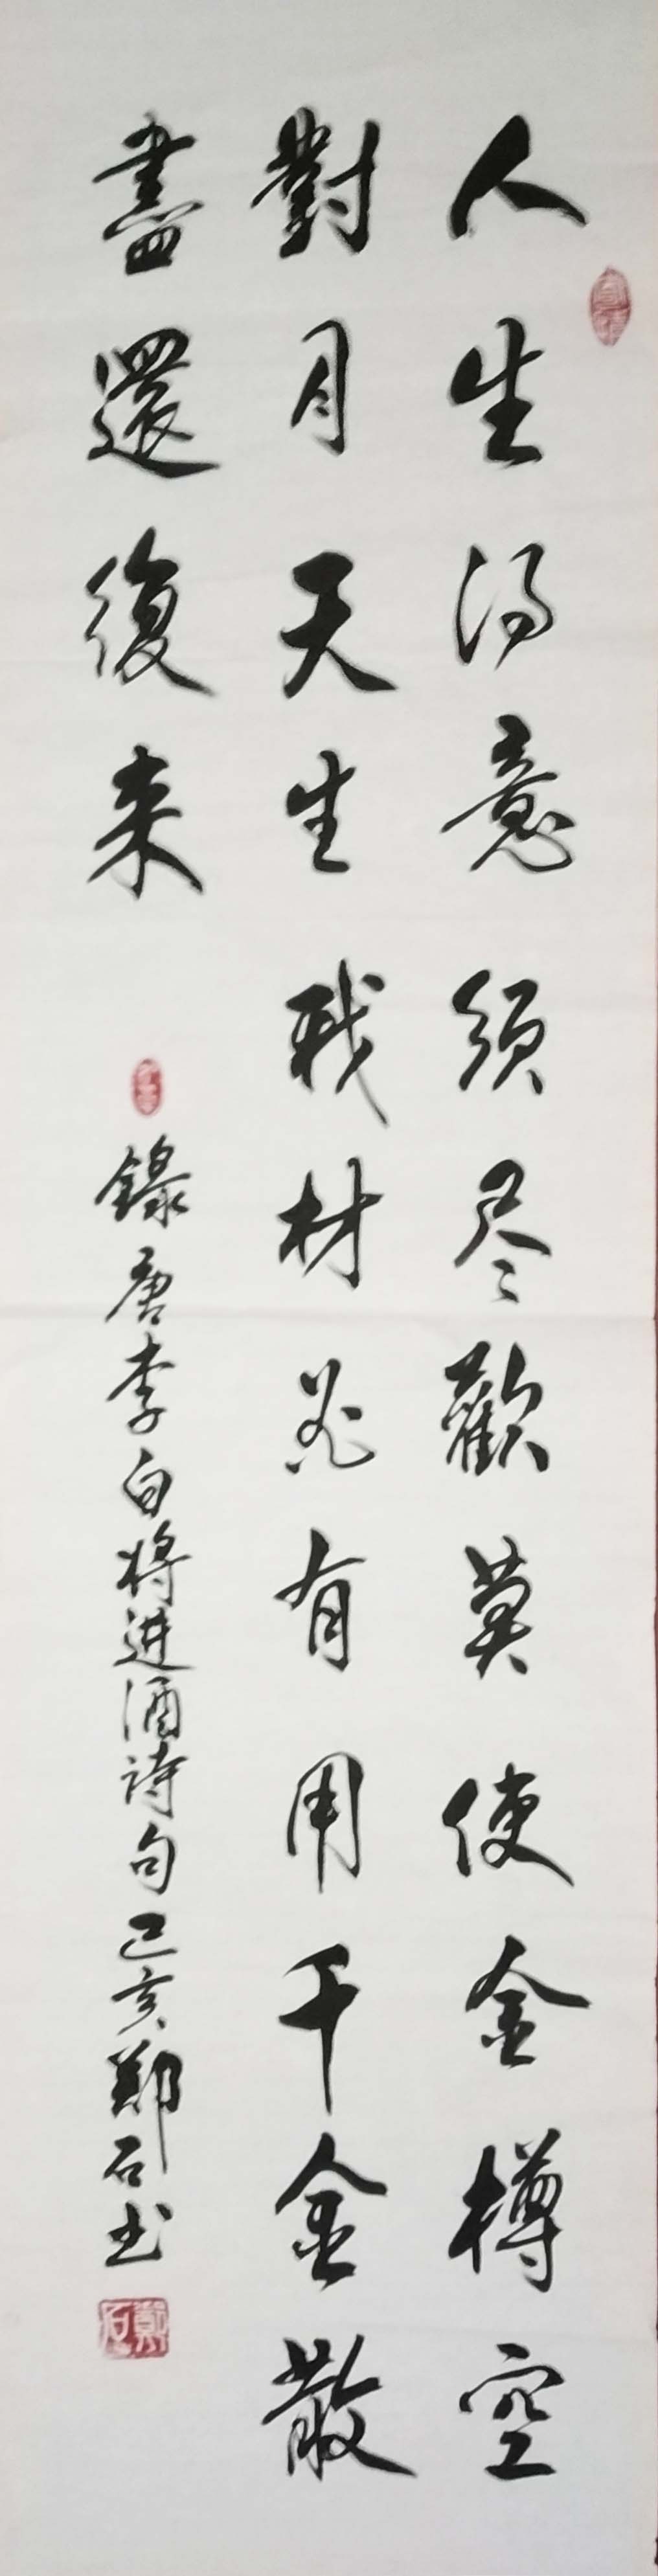 人生得意須尽歡莫使金樽空
對月天生我材必有用千金散
盡還復来
錄唐李白将进酒诗句己亥鄭石书
鄭石